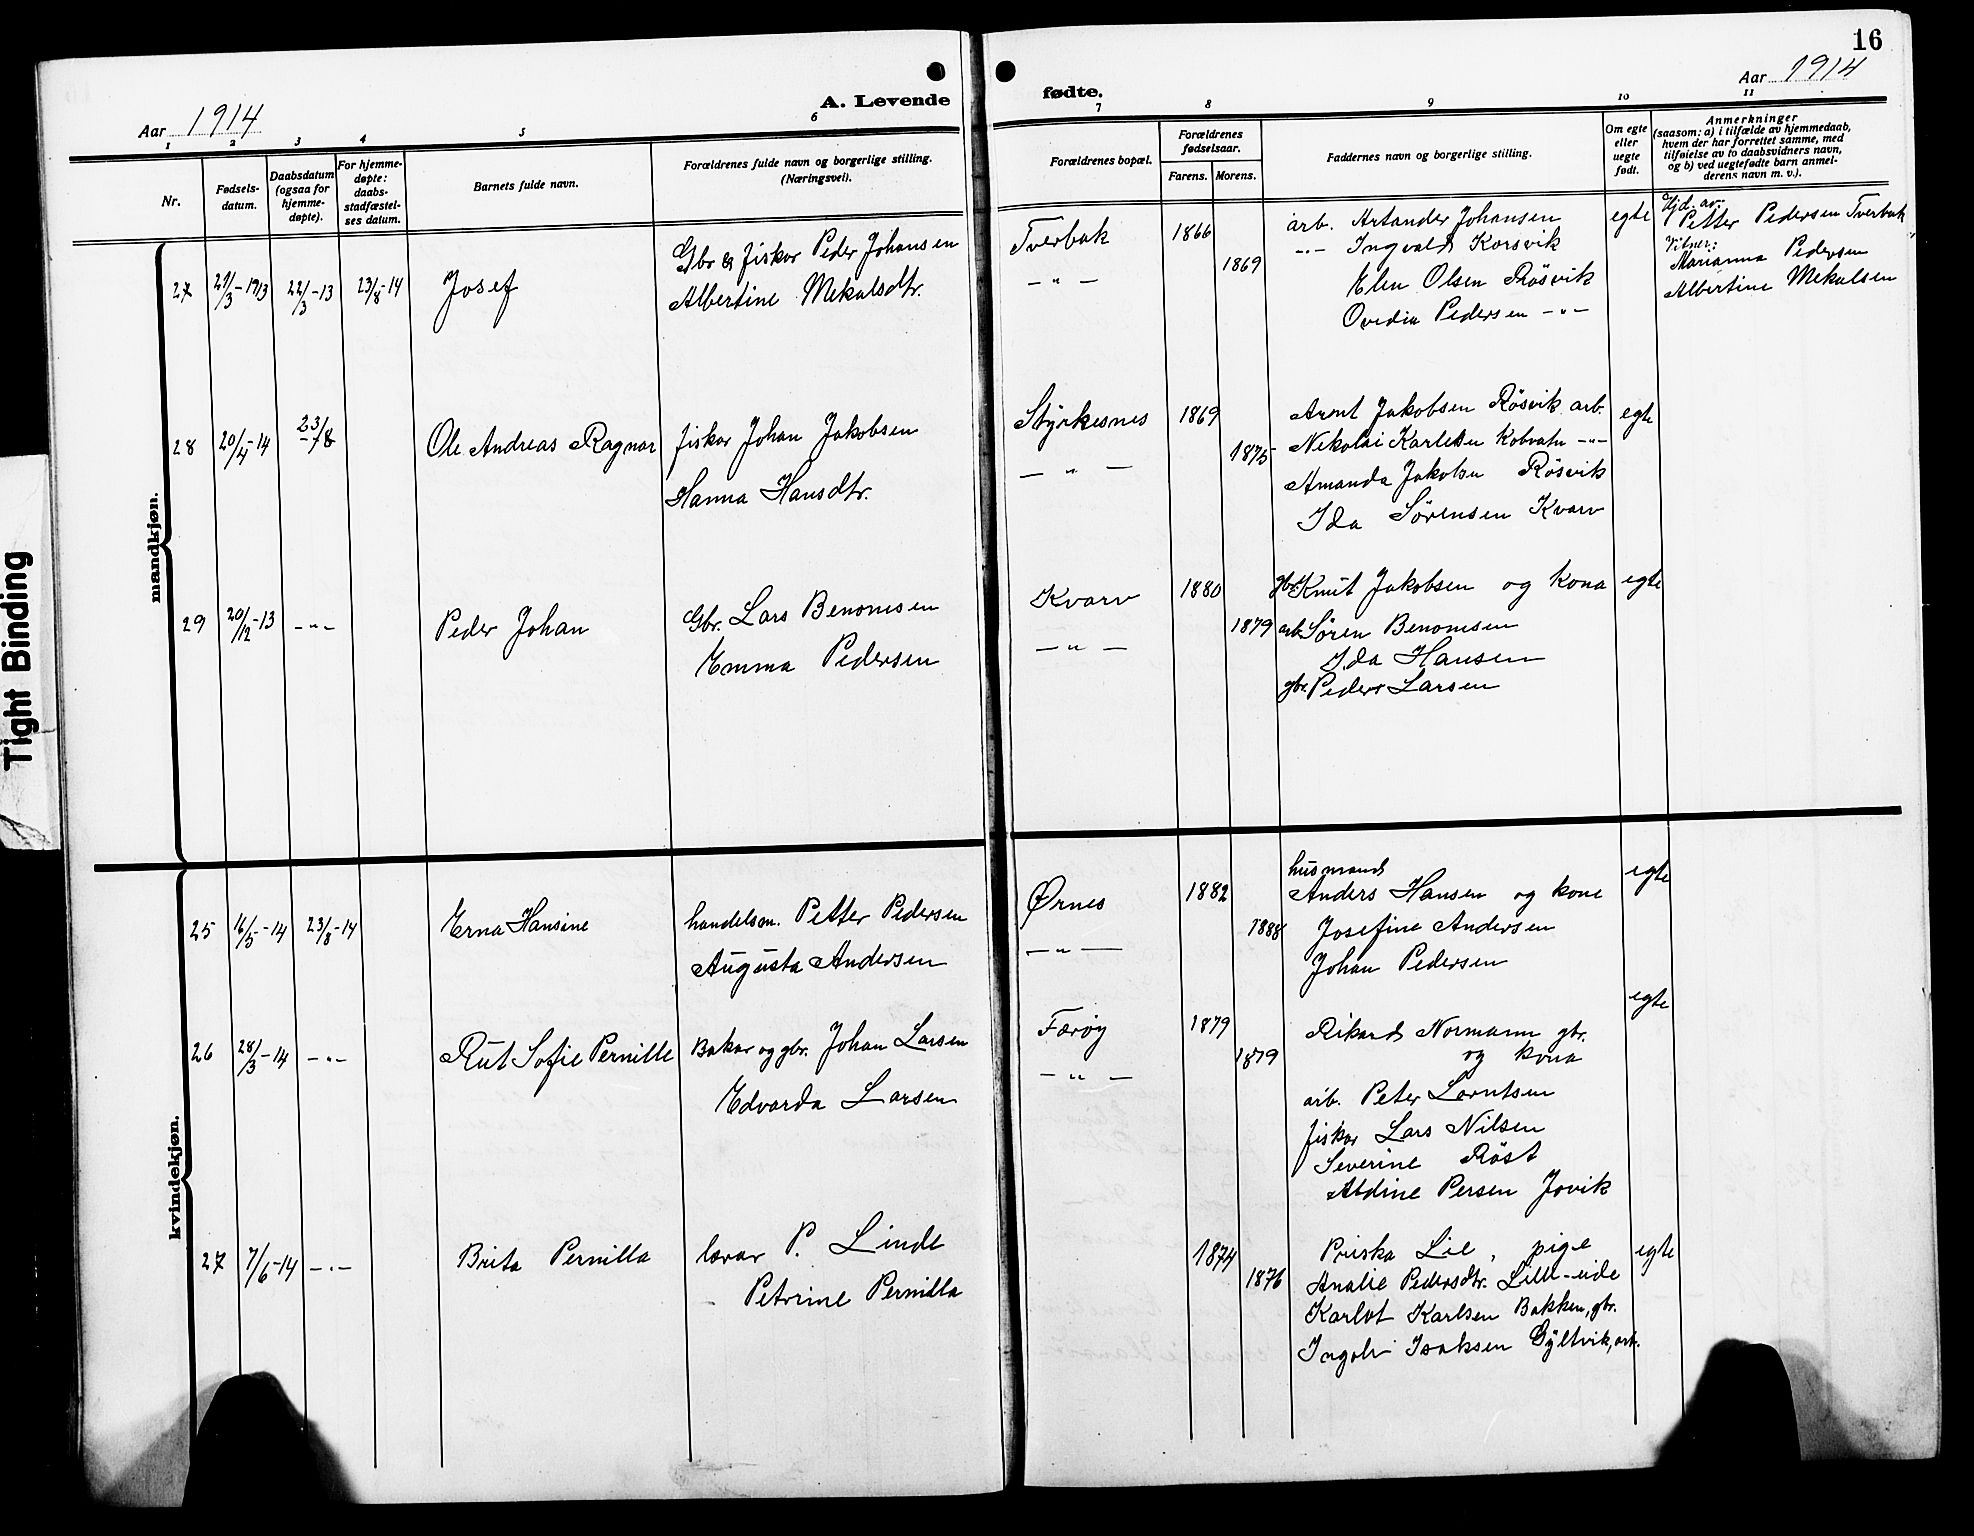 16
Aar 1914
A. Levende
fødte.
Aar 1914
1 2 3 4 5 6 7 8 9 10 11
Nr.
Fødsels-
datum.
Daabsdatum
(ogsaa for
hjemme-
døpte).
For hjemme-
døpte:
daabs-
stadfæstel-
ses datum.
Barnets fulde navn.
Forældrenes fulde navn og borgerlige stilling.
(Næringsvei).
Forældrenes bopæl.
Forældrenes
fødselsaar.
Farens. Morens.
Faddernes navn og borgerlige stilling.
Om egte
eller
uegte
født.
Anmerkninger
(saasom: a) i tilfælde av hjemmedaab,
hvem der har forrettet samme, med
tilføielse av to daabsvidners navn,
og b) ved uegtefødte barn anmel-
derens navn m. v.).
mandkjøn.
27 21/3-1913 22/3-13 23/8-14 Josef
Gbr & fisker Peder Johansen
Albertine Mekalsdtr.
Tverbak 1866
— " — 1869
arb. Artander Johansen
-"- Ingvald Korsvik
Elen Olsen Røsvik
Ovedia Pedersen -"-
egte
Hjd. av.
Petter Pedersen Tverbak
Vitner:
Marianna Pedersen
Albertine Mekalsen
28 20/4-14 23/8 Ole Andreas Ragnar
fisker Johan Jakobsen
Hanna Hansdtr.
Styrkesnes 1869
— " — 1875
Arent Jakobsen Røsvik arb.
Nekolai Karlesen Kobvatn -"-
Amanda Jakobsn Røsvik
Ida Sørensen Kvarv
egte
29 20/12-13 -"- Peder Johan
Gbr. Lars Benomsen
Emma Pedersen
Kvarv 1880
— " — 1879
gbr Knut Jakobsen og kona
arb Søren Benomsen
Ida Hansen
gbr Peder Larsen
egte
kvindekjøn.
25 16/5-14 23/8-14 Erna Hansine
handelsm. Petter Pedersen
Augusta Andersen
Ørnes 1882
— " — 1888
husmand
Anders Hansen og kone
Josefine Andersen
Johan Pedersen
egte
26 28/3-14 -"- Rut Sofie Pernille
Baker og gbr. Johan Larsen
Edvarda Larsen
Færøy 1879
— " — 1879
Rikard Normann gbr.
og kona
arb. Peter Lorntsen
fisker Lars Nilsen
Severine Røst
Aldine Persen Jovik
egte
27 7/6-14 -"- Brita Pernilla
lærar P. Linde
- Petrine Pernilla
1874
1876
Priska Lie, pige
Analie Pedersdtr. Lille-eide
Karlot Karlsen Bakken, gbr.
Ingolv Isaksen Gyltvik, arb.
egte
Tight Binding